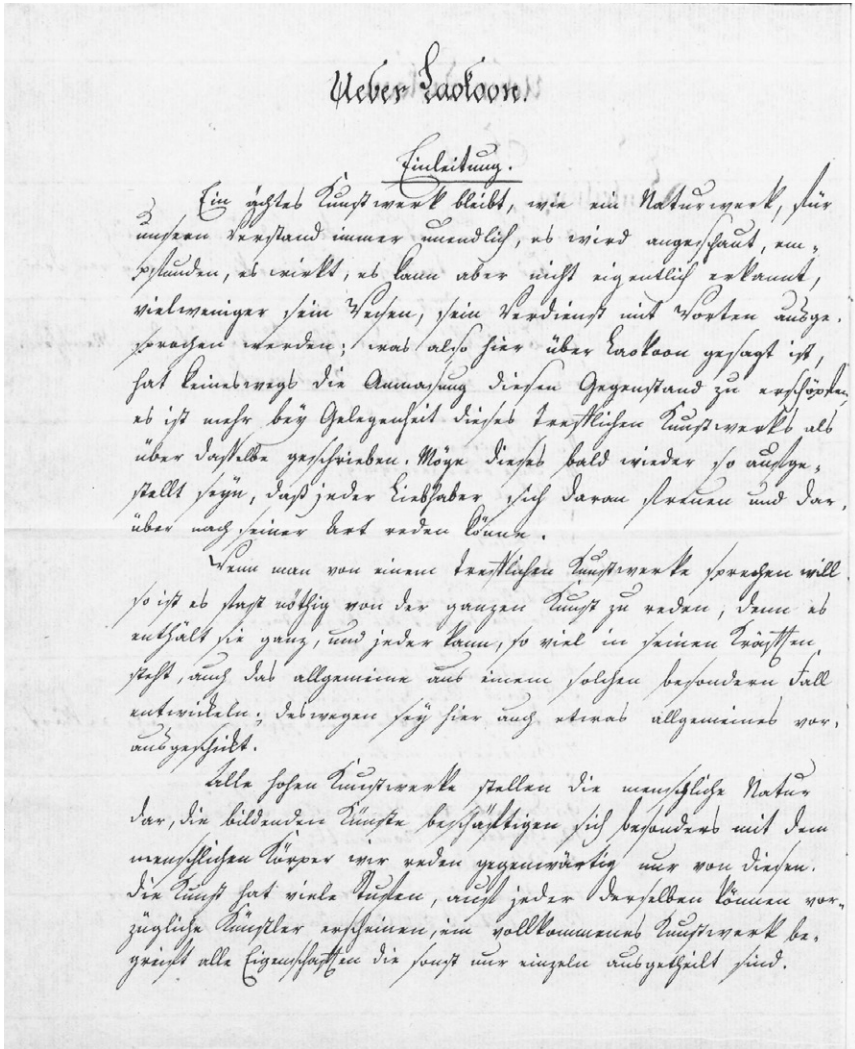 Ueber Laokoon.
Einleitung.
Ein ächtes Kunstwerk bleibt, wie ein Naturwerk, für
unsern Verstand immer unendlich, es wird angeschaut, em-
pfunden, es wirkt, es kann aber nicht eigentlich erkannt,
vielweniger sein Wesen, sein Verdienst mit Worten ausge-
sprochen werden; was also hier über Laokoon gesagt ist,
hat keineswegs die Anmasung diesen Gegenstand zu erschöpfen,
es ist mehr bey Gelegenheit dieses trefflichen Kunstwerks als
über dasselbe geschrieben. Möge dieses bald wieder so aufge-
stellt seyn, daß jeder Liebhaber sich daran freuen und dar-
über nach seiner Art reden könne.
Wenn man von einem trefflichen Kunstwerke sprechen will
so ist es fast nöthig von der ganzen Kunst zu reden, denn es
enthält sie ganz, und jeder kann, so viel in seinen Kräften
steht, auch das allgemeine aus einem solchen besondern Fall
entwickeln; deswegen sey hier auch etwas allgemeines vor-
ausgeschickt.
Alle hohen Kunstwerke stellen die menschliche Natur
dar, die bildenden Künste beschäftigen sich besonders mit dem
menschlichen Körper wir reden gegenwärtig nur von diesen.
Die Kunst hat viele Stufen, auf jeder derselben können vor-
zügliche Künstler erscheinen, ein vollkommenes Kunstwerk be-
greift alle Eigenschaften die sonst nur einzeln ausgetheilt sind.